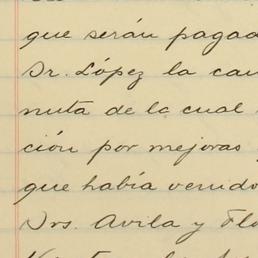 que serán pagad
Dr. López la can
nuta de la cual
ción por mejoras
que había venido
Drs. Avila y Flo